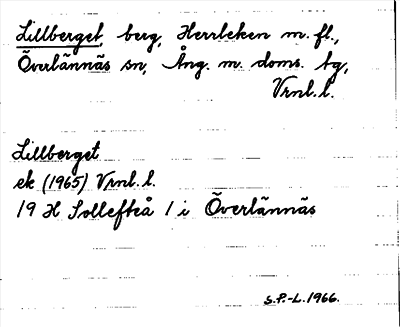 Lillberget, berg, Herrleken m. fl.,
Överlännäs sn, Ång. m. doms. tg,
Vrnl. l.
Lillberget
ek (1965) Vrnl. l.
19 H Sollefteå 1 i Överlännäs
S.P.-L. 1966.